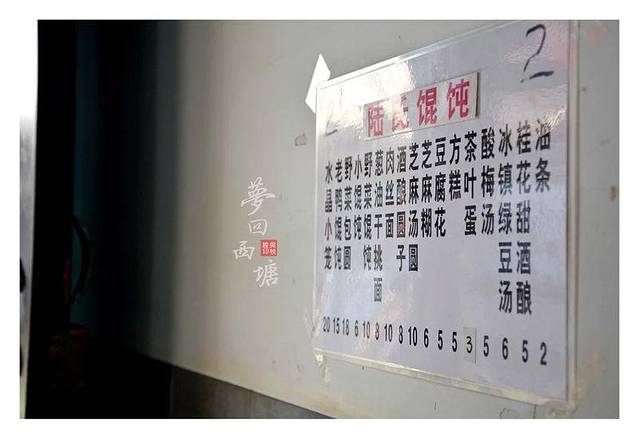 2
陆氏馄饨
水晶小笼
老鸭馄饨
野菜包圆
小馄饨
野菜馄饨
葱油干挑面
肉丝面
酒酿圆子
芝麻汤圆
芝麻糊
豆腐花
方糕
茶叶蛋
酸梅汤
冰镇绿豆汤
桂花甜酒酿
油条
20 15 18 6 10 8 10 8 10 6 5 5 3 5 6 5 2
夢回西塘